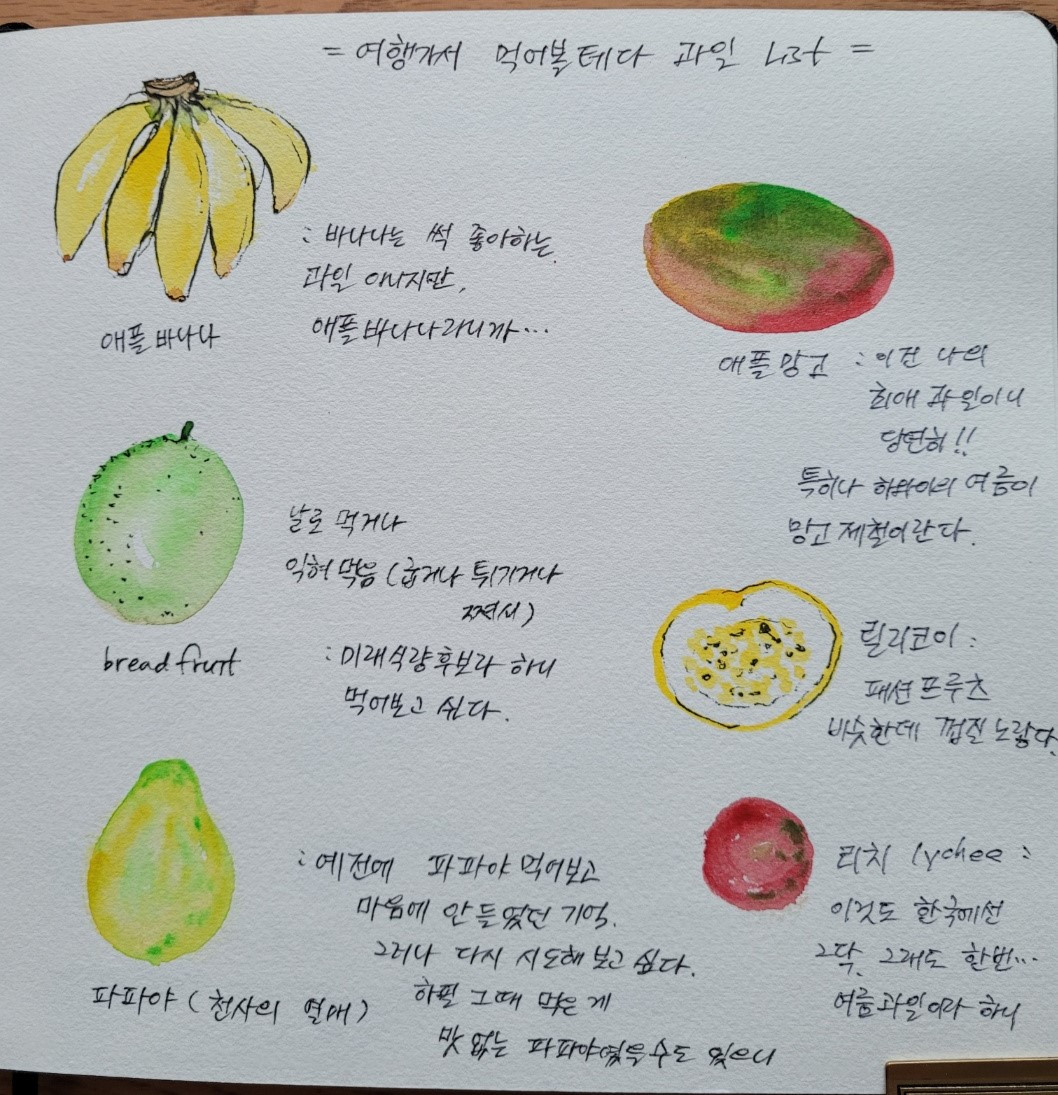 = 여행가서 먹어볼테다 과일 List =
: 바나나는 썩 좋아하는
과일 아니지만,
애플바나나라니까...
애플바나나
애플망고 : 이건 나의
최애 과일이니
당연히!!
특히나 하와이의 여름이
망고 제철이란다.
날로 먹거나
익혀먹음 (굽거나 튀기거나
쪄서)
breadfruit
: 미래식량후보라 하니
먹어보고 싶다.
릴리코이 :
패션프루츠
비슷한데 껍질 노랗다.
: 예전에 파파야 먹어보고
마음에 안들었던 기억.
그러나 다시 시도해 보고 싶다.
하필 그때 먹은 게
맛없는 파파야였을수도 있으니
파파야 (천사의 열매)
리치 lychee :
이것도 한국에선
그닥. 그래도 한번...
여름과일이라 하니